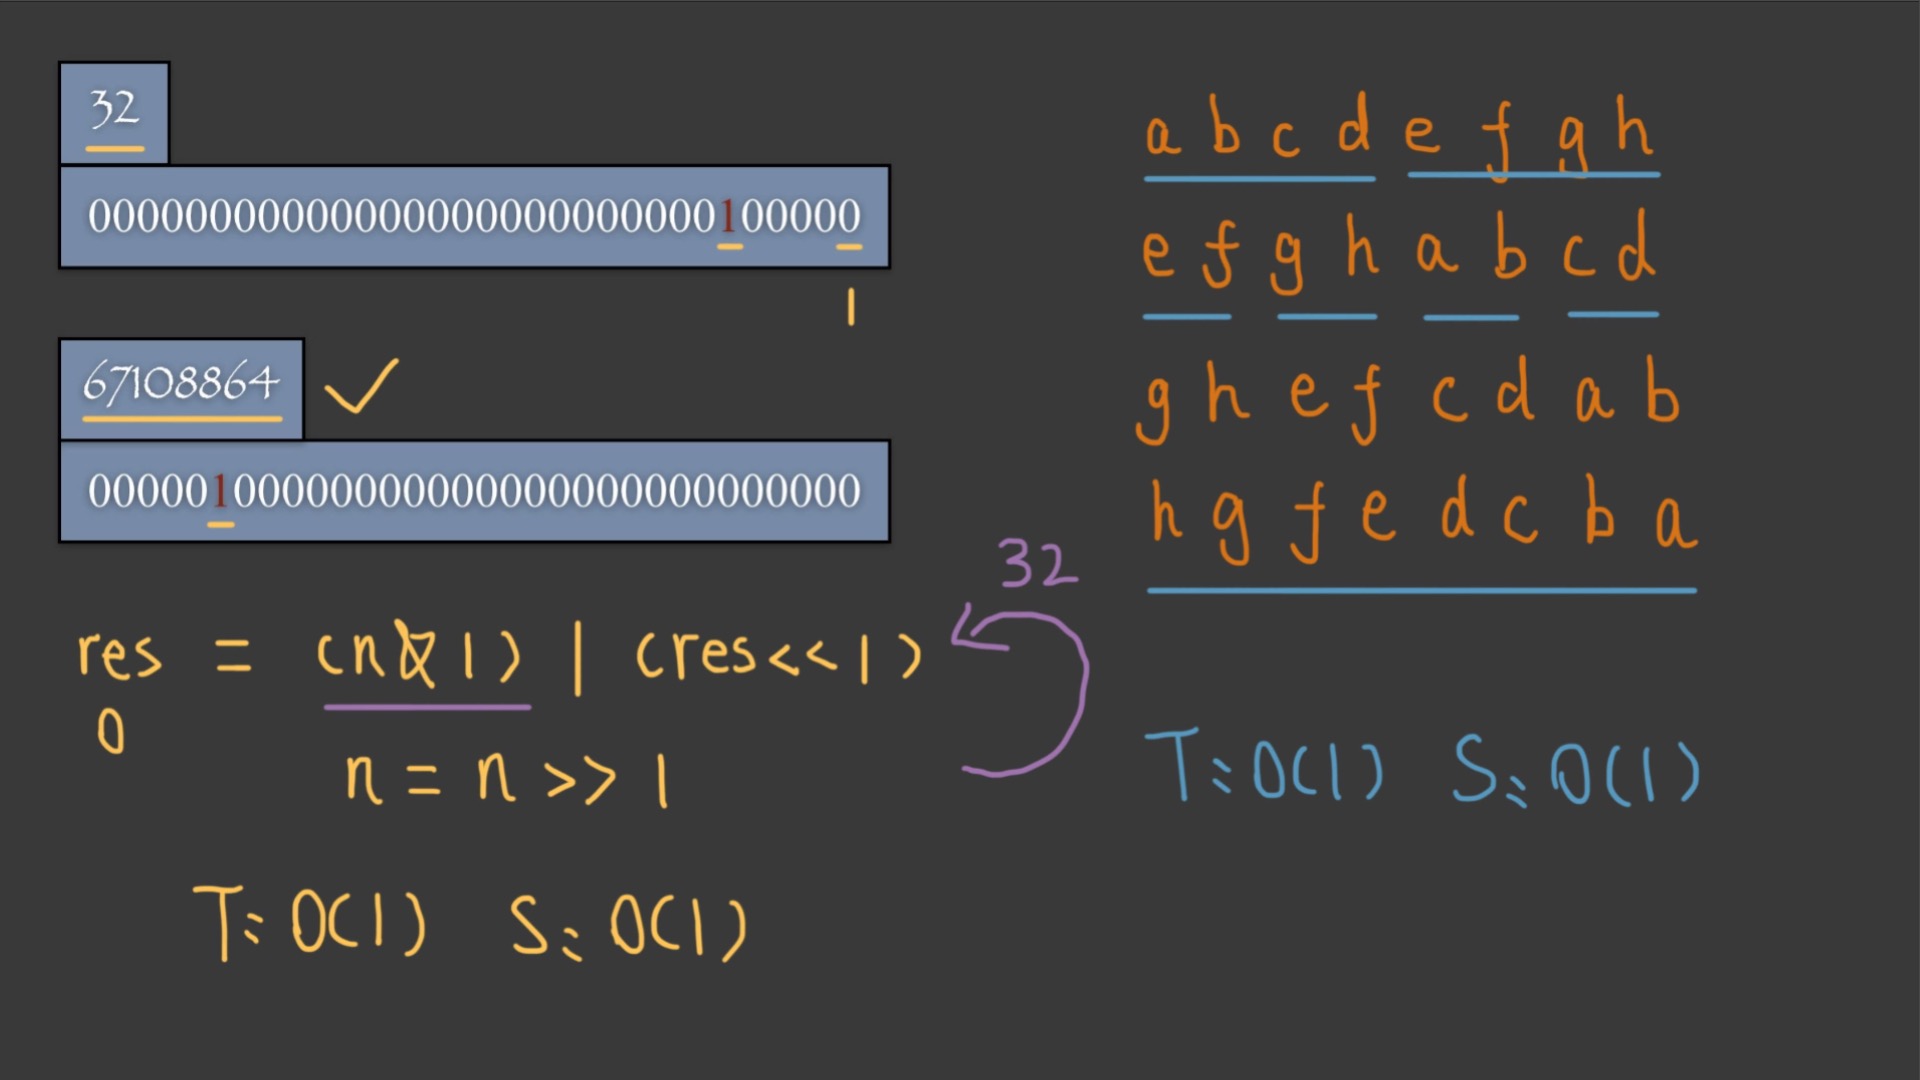 32
00000000000000000000000000100000
1
67108864
00000100000000000000000000000000
res = (n&1) | (res<<1)
0
n = n >> 1
32
T: O(1) S: O(1)
a b c d e f g h
e f g h a b c d
g h e f c d a b
h g f e d c b a
T: O(1) S: O(1)